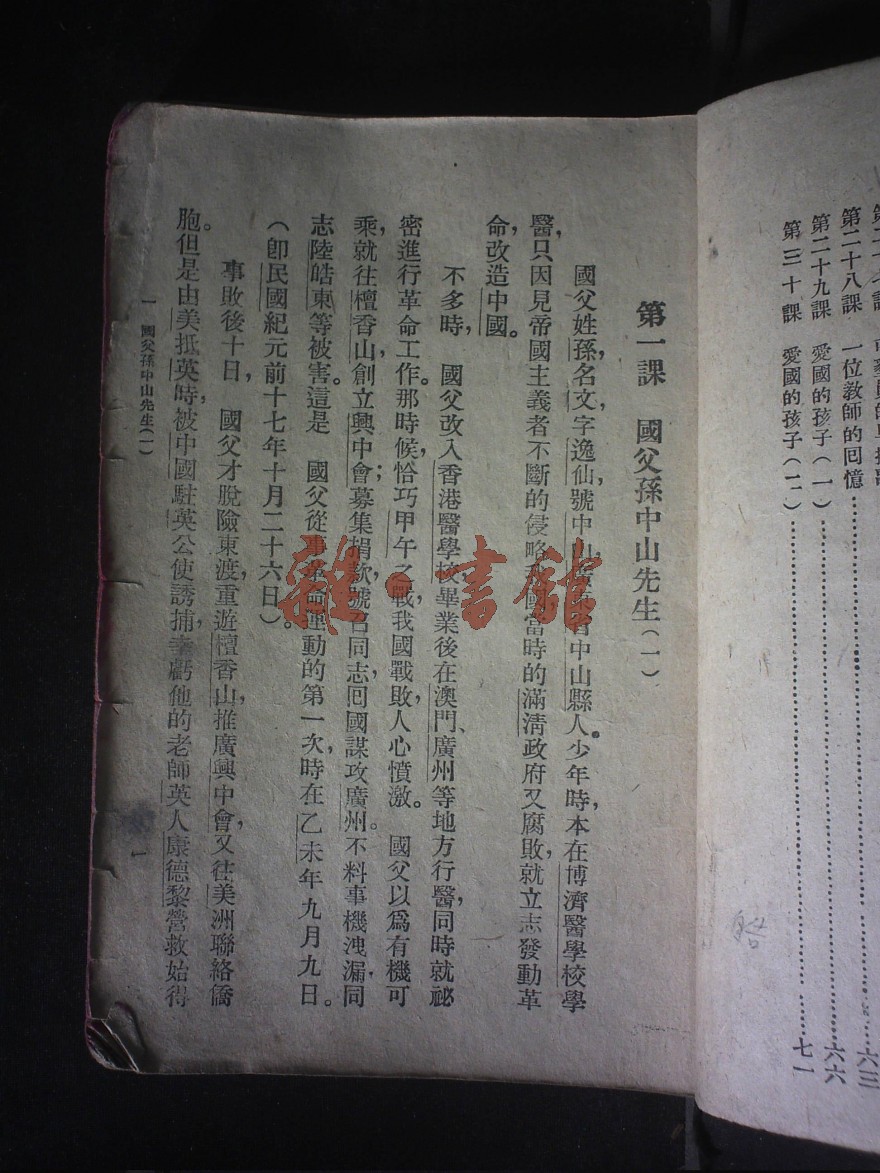 第二十八課　一位教師的回憶
第二十九課　愛國的孩子(一)……六六
第三十課　愛國的孩子(二)……七一
六三
第一課　國父孫中山先生(一)
國父姓孫,名文,字逸仙,號中山,廣東省中山縣人。少年時,本在博濟醫學校學
醫,只因見帝國主義者不斷的侵略我國,當時的滿清政府又腐敗,就立志發動革
命,改造中國。
不多時,國父改入香港醫學校,畢業後在澳門、廣州等地方行醫,同時就祕
密進行革命工作。那時候,恰巧甲午之戰,我國戰敗,人心憤激。國父以爲有機可
乘,就往檀香山,創立興中會;募集捐款,號召同志,囘國謀攻廣州。不料事機洩漏,同
志陸皓東等被害。這是國父從事革命運動的第一次,時在乙未年九月九日。
(卽民國紀元前十七年十月二十六日)。
事敗後十日,國父才脫險東渡,重遊檀香山,推廣興中會,又往美洲聯絡僑
胞。但是由美抵英時,被中國駐英公使誘捕,幸虧他的老師英人康德黎營救,始得
一　國父孫中山先生(一)
一
雜·書館